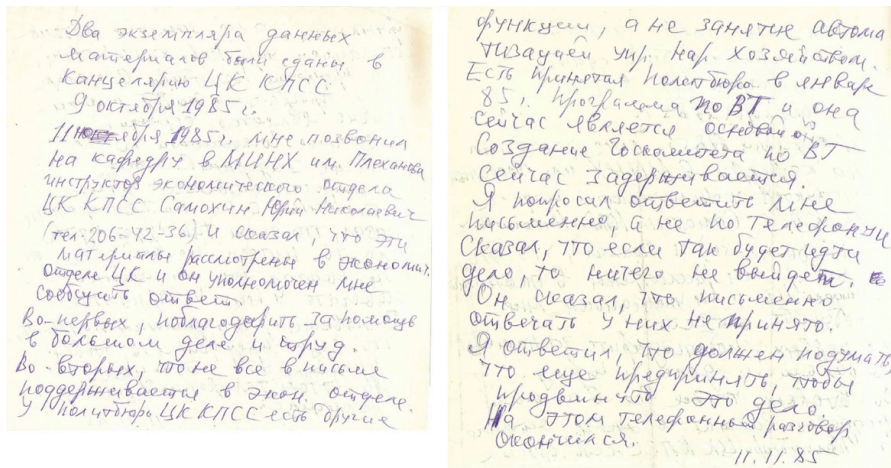 Два экземпляра данных
материалов были сданы в
канцелярию ЦК КПСС
9 октября 1985г.
11 ноября 1985г. мне позвонил
на кафедру в МИНХ им. Плеханова
инструктор экономического отдела
ЦК КПСС Самохин Юрий Николаевич
(тел. 206-42-36) и сказал, что эти
материалы рассмотрены в экономич.
отделе ЦК и он уполномочен мне
сообщить ответ.
Во-первых, поблагодарить за помощь
в большом деле и труд.
Во-вторых, что не все в письме
поддерживается в экон. отделе.
У Политбюро ЦК КПСС есть другие
функции, а не занятие автома
тизацией упр. нар. хозяйством.
Есть принятая Политбюро в январе
85г. программа по ВТ и она
сейчас является основной.
Создание Госкомитета по ВТ
сейчас задерживается.
Я попросил ответить мне
письменно, а не по телефону и
сказал, что если так будет идти
дело, то ничего не выйдет.
Он сказал, что письменно
отвечать у них не принято.
Я ответил, что должен подумать,
что еще предпринять, чтобы
продвинуть это дело.
На этом телефонный разговор
окончился.
11.11.85